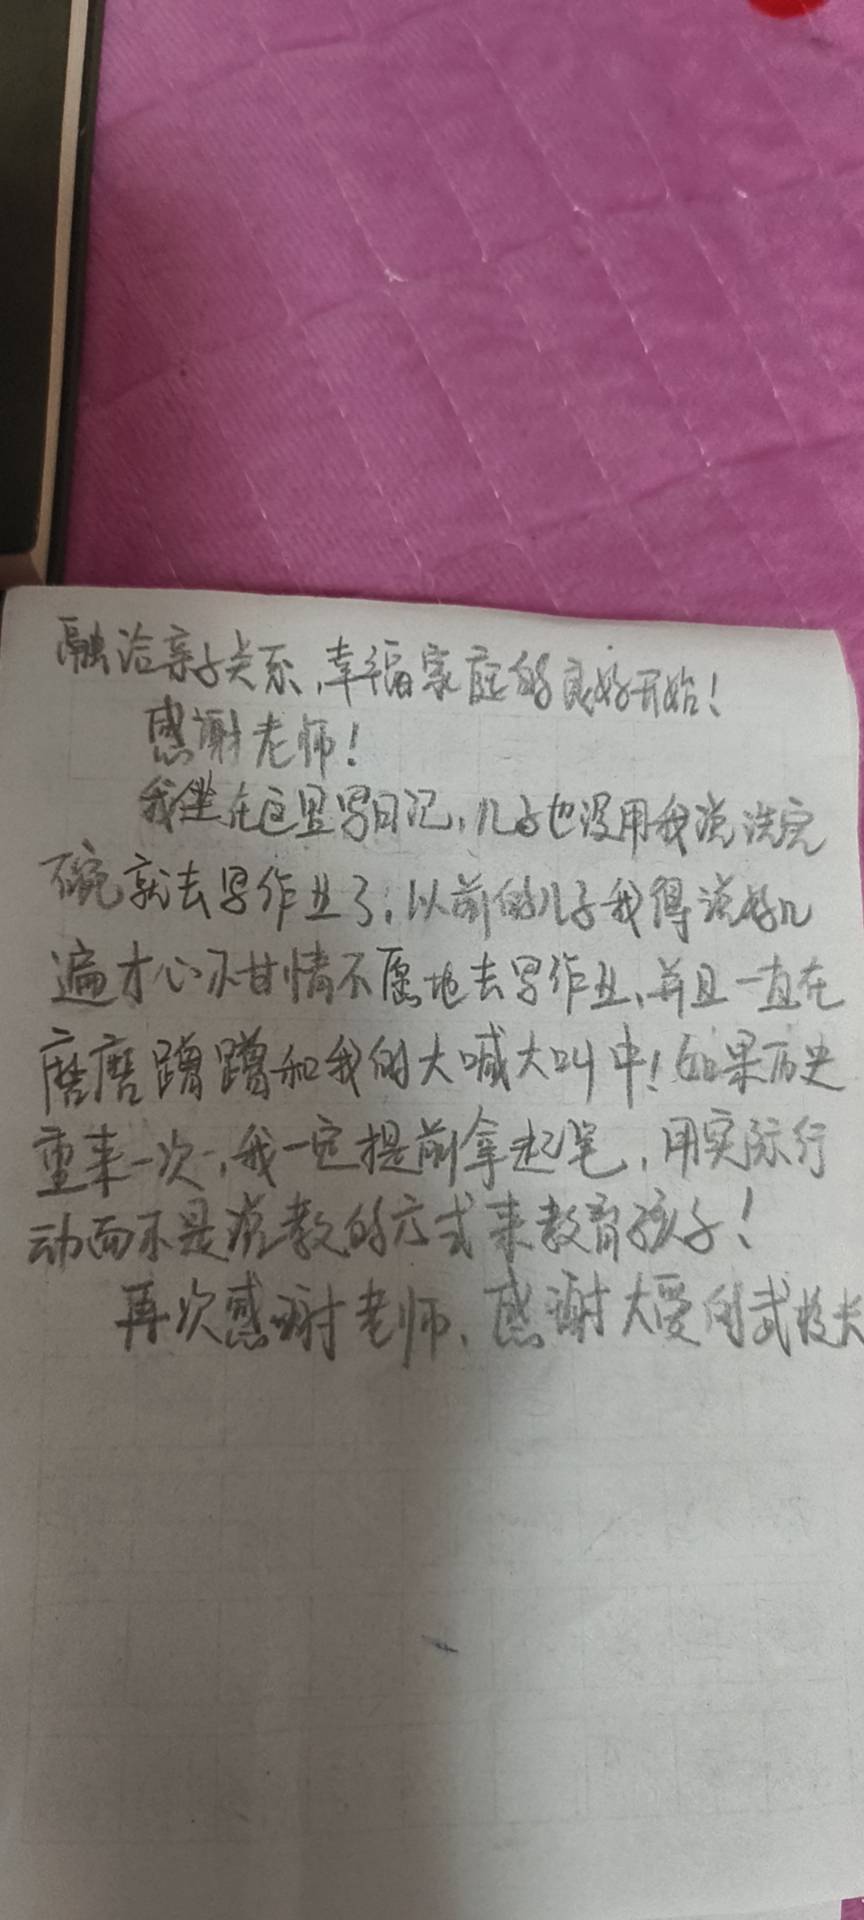 融洽亲子关系、幸福家庭的良好开始!
感谢老师!
我坐在这里写日记,儿子也没用我说洗完
碗就去写作业了,以前的儿子我得说好几
遍才心不甘情不愿地去写作业、并且一直在
磨磨蹭蹭和我的大喊大叫中!如果历史
重来一次,我一定提前拿起笔,用实际行
动而不是说教的方式来教育孩子!
再次感谢老师、感谢大爱的武校长